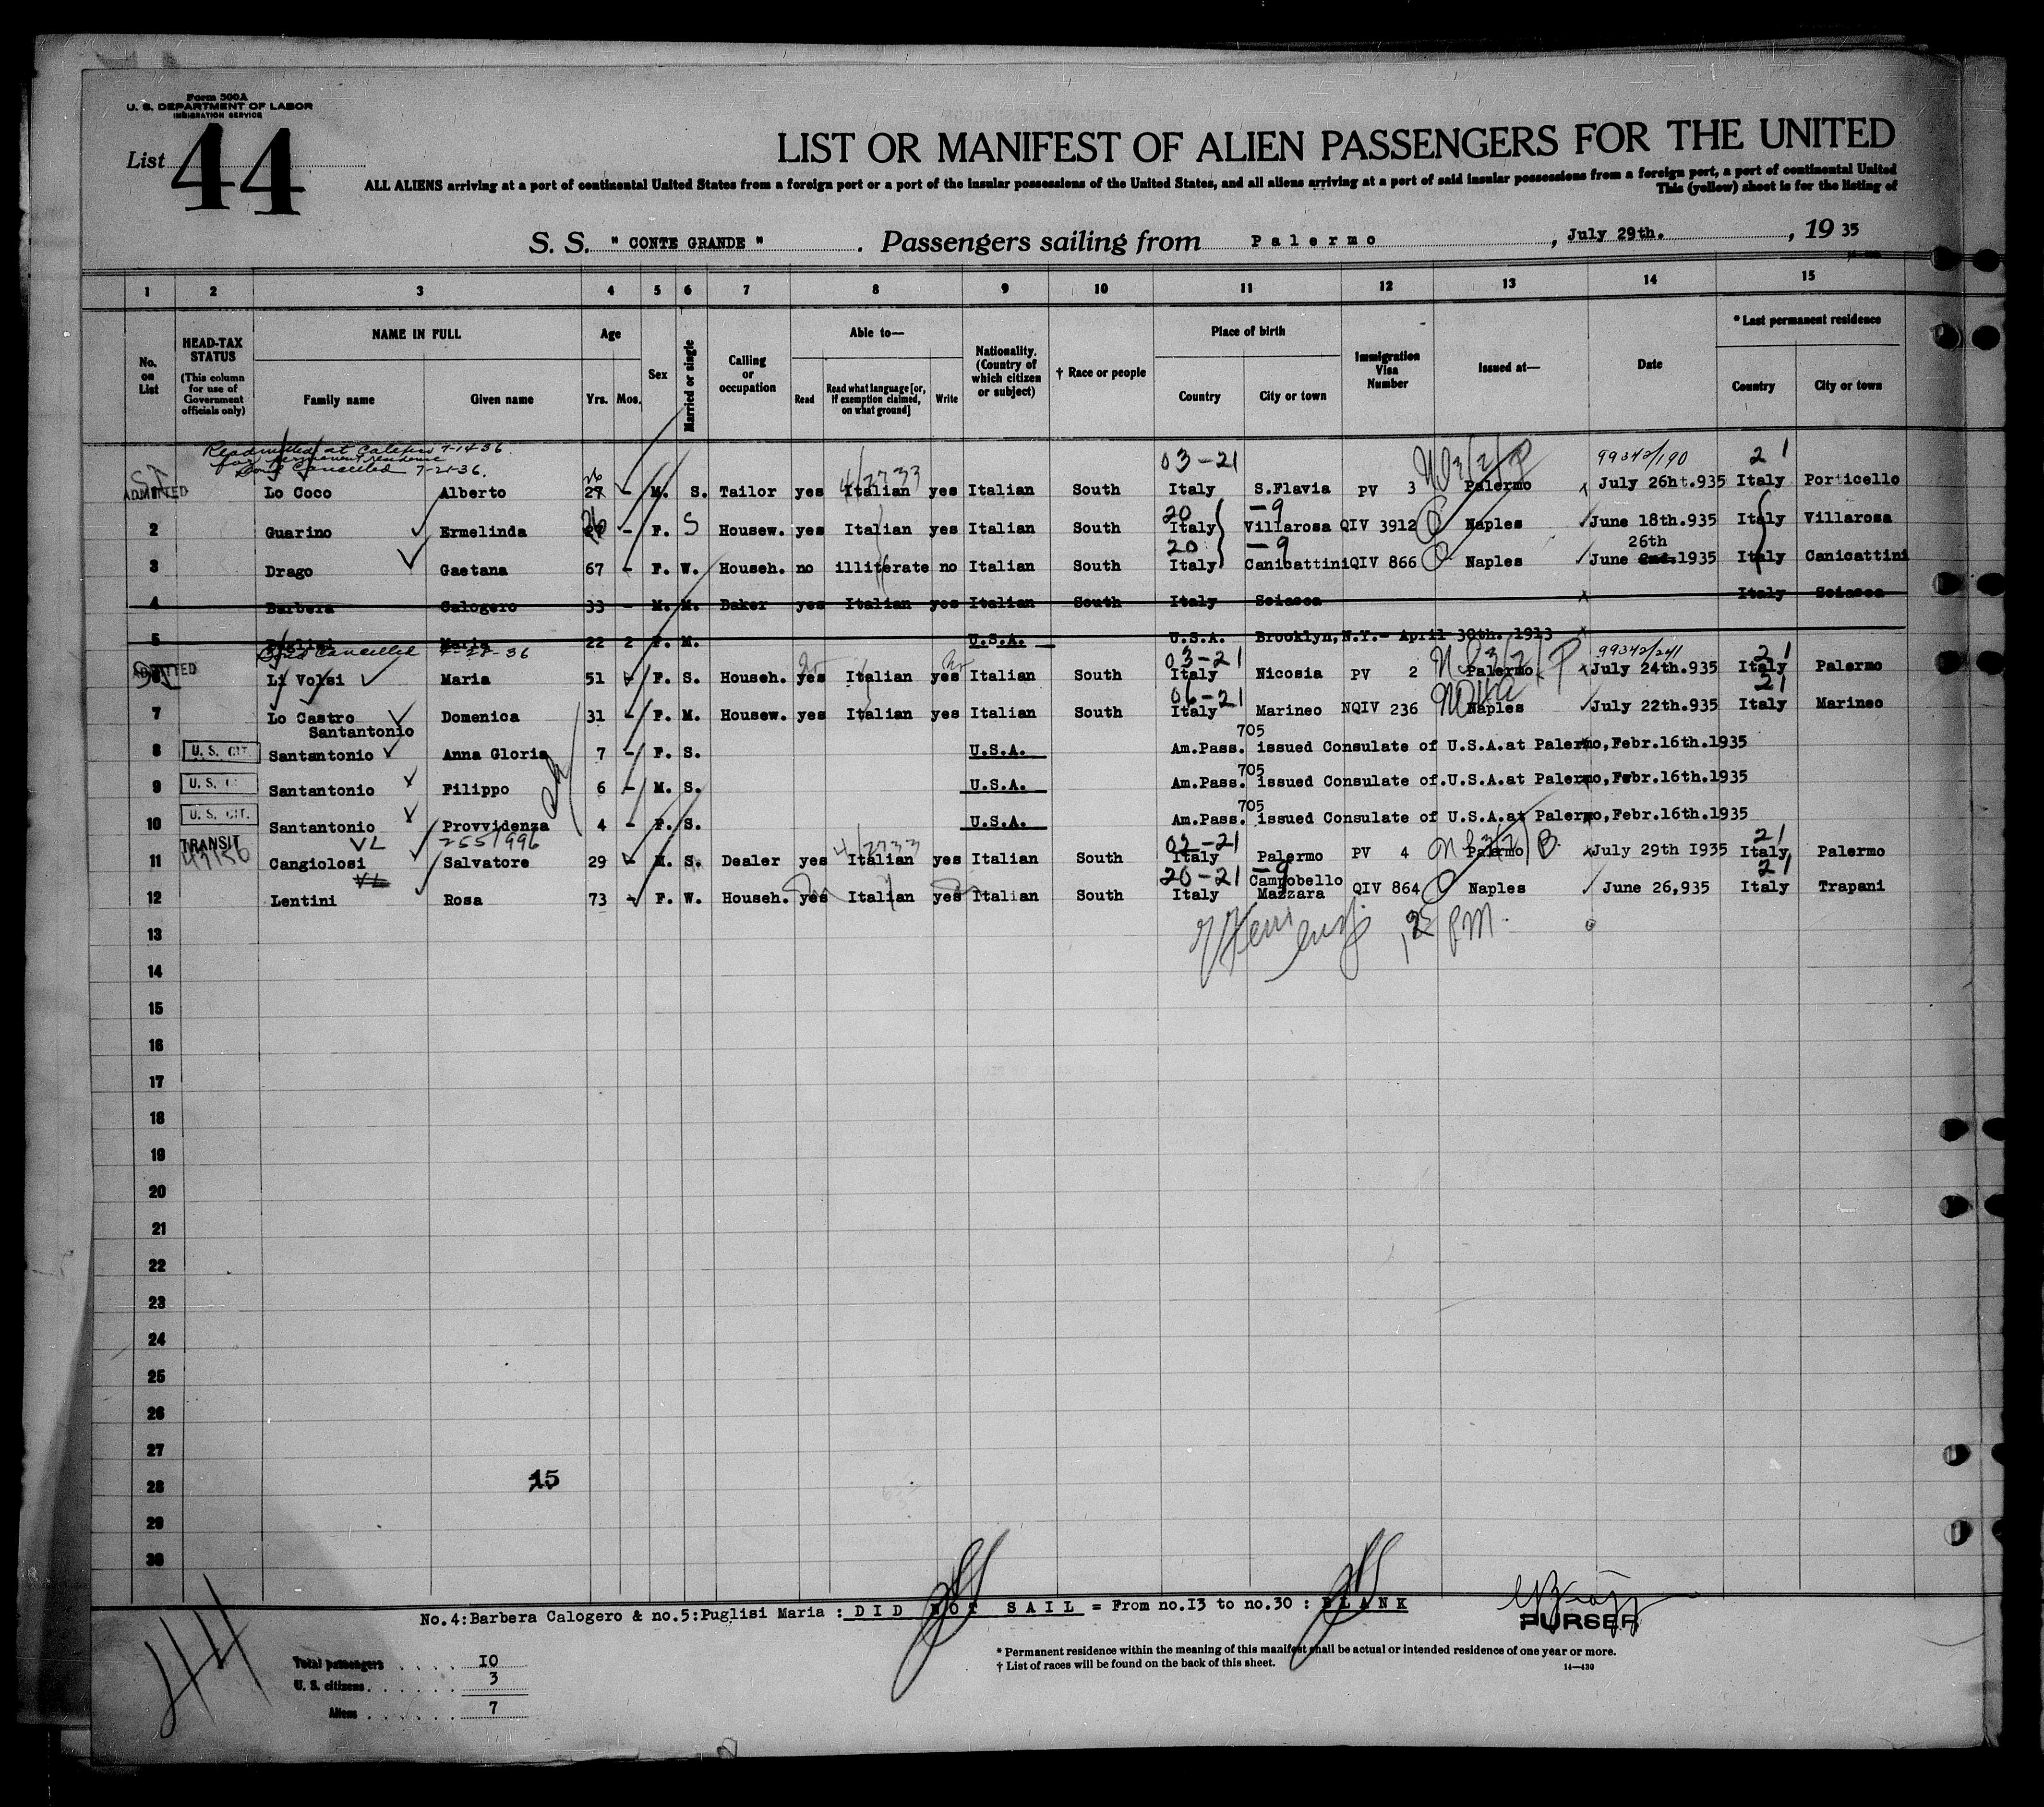 Form 500A
U. S. DEPARTMENT OF LABOR
IMMIGRATION SERVICE
List 44
LIST OR MANIFEST OF ALIEN PASSENGERS FOR THE UNITED
ALL ALIENS arriving at a port of continental United States from a foreign port or a port of the insular possessions of the United States, and all aliens arriving at a port of said insular possessions from a foreign port, a port of continental United
This (yellow) sheet is for the listing of
S. S. " CONTE GRANDE " . Passengers sailing from Palermo , July 29th. , 19 35
1 2 3 4 5 6 7 8 9 10 11 12 13 14 15
No. on List
HEAD-TAX STATUS (This column for use of Government officials only)
NAME IN FULL Family name Given name
Age Yrs. Mos.
Sex
Married or single
Calling or occupation
Able to— Read Read what language [or, if exemption claimed, on what ground] Write
Nationality. (Country of which citizen or subject)
† Race or people
Place of birth Country City or town
Immigration Visa Number
Issued at—
Date
* Last permanent residence Country City or town
Readmitted at Calexico 7-14-36
for permanent residence
Bond Cancelled 7-21-36.
03-21 99342/190 21
ADMITTED Lo Coco Alberto 27 26 - M. S. Tailor yes Italian yes Italian South Italy S.Flavia PV 3 Palermo July 26ht.935 Italy Porticello
4/2733
20 -9
2 Guarino Ermelinda 26 - F. S Housew. yes Italian yes Italian South Italy Villarosa QIV 3912 Naples June 18th.935 Italy Villarosa
20 -9 26th
3 Drago Gaetana 67 - F. W. Househ. no illiterate no Italian South Italy Canicattini QIV 866 Naples June 2nd.1935 Italy Canicattini
4 Barbera Calogero 33 - M. M. Baker yes Italian yes Italian South Italy Sciacca Italy Sciacca
5 Puglisi Maria 22 2 F. M. U.S.A. U.S.A. Brooklyn,N.Y.- April 30th. 1913
Bond Cancelled 7-28-36
03-21 99342/241 21
ADMITTED Li Volsi Maria 51 - F. S. Househ. yes Italian yes Italian South Italy Nicosia PV 2 Palermo July 24th.935 Italy Palermo
06-21 21
7 Lo Castro Domenica 31 - F. M. Housew. yes Italian yes Italian South Italy Marineo NQIV 236 Naples July 22th.935 Italy Marineo
Santantonio
705
8 U. S. CIT. Santantonio Anna Gloria 7 - F. S. U.S.A. Am.Pass. issued Consulate of U.S.A.at Palermo,Febr.16th.1935
705
9 U. S. C Santantonio Filippo 6 - M. S. U.S.A. Am.Pass. issued Consulate of.U.S.A.at Palermo,Febr.16th.1935
705
10 U. S. CIT. Santantonio Provvidenza 4 - F. S. U.S.A. Am.Pass. issued Consulate of U.S.A.at Palermo,Febr.16th.1935
TRANSIT VL 255/996 4/2733 03-21 21
11 Cangiolosi Salvatore 29 - M. S. Dealer yes Italian yes Italian South Italy Palermo PV 4 Palermo July 29th I935 Italy Palermo
VL 20-21 -9 21
12 Lentini Rosa 73 - F. W. Househ. yes Italian yes Italian South Italy Campobello Mazzara QIV 864 Naples June 26,935 Italy Trapani
13
14
15
16
17
18
19
20
21
22
23
24
25
26
27
28
29
30
15
No.4:Barbera Calogero & no.5:Puglisi Maria : DID NOT SAIL = From no.I3 to no.30 : BLANK
PURSER
44
Total passengers 10
U. S. citizens 3
Aliens 7
* Permanent residence within the meaning of this manifest shall be actual or intended residence of one year or more.
† List of races will be found on the back of this sheet.
14—430